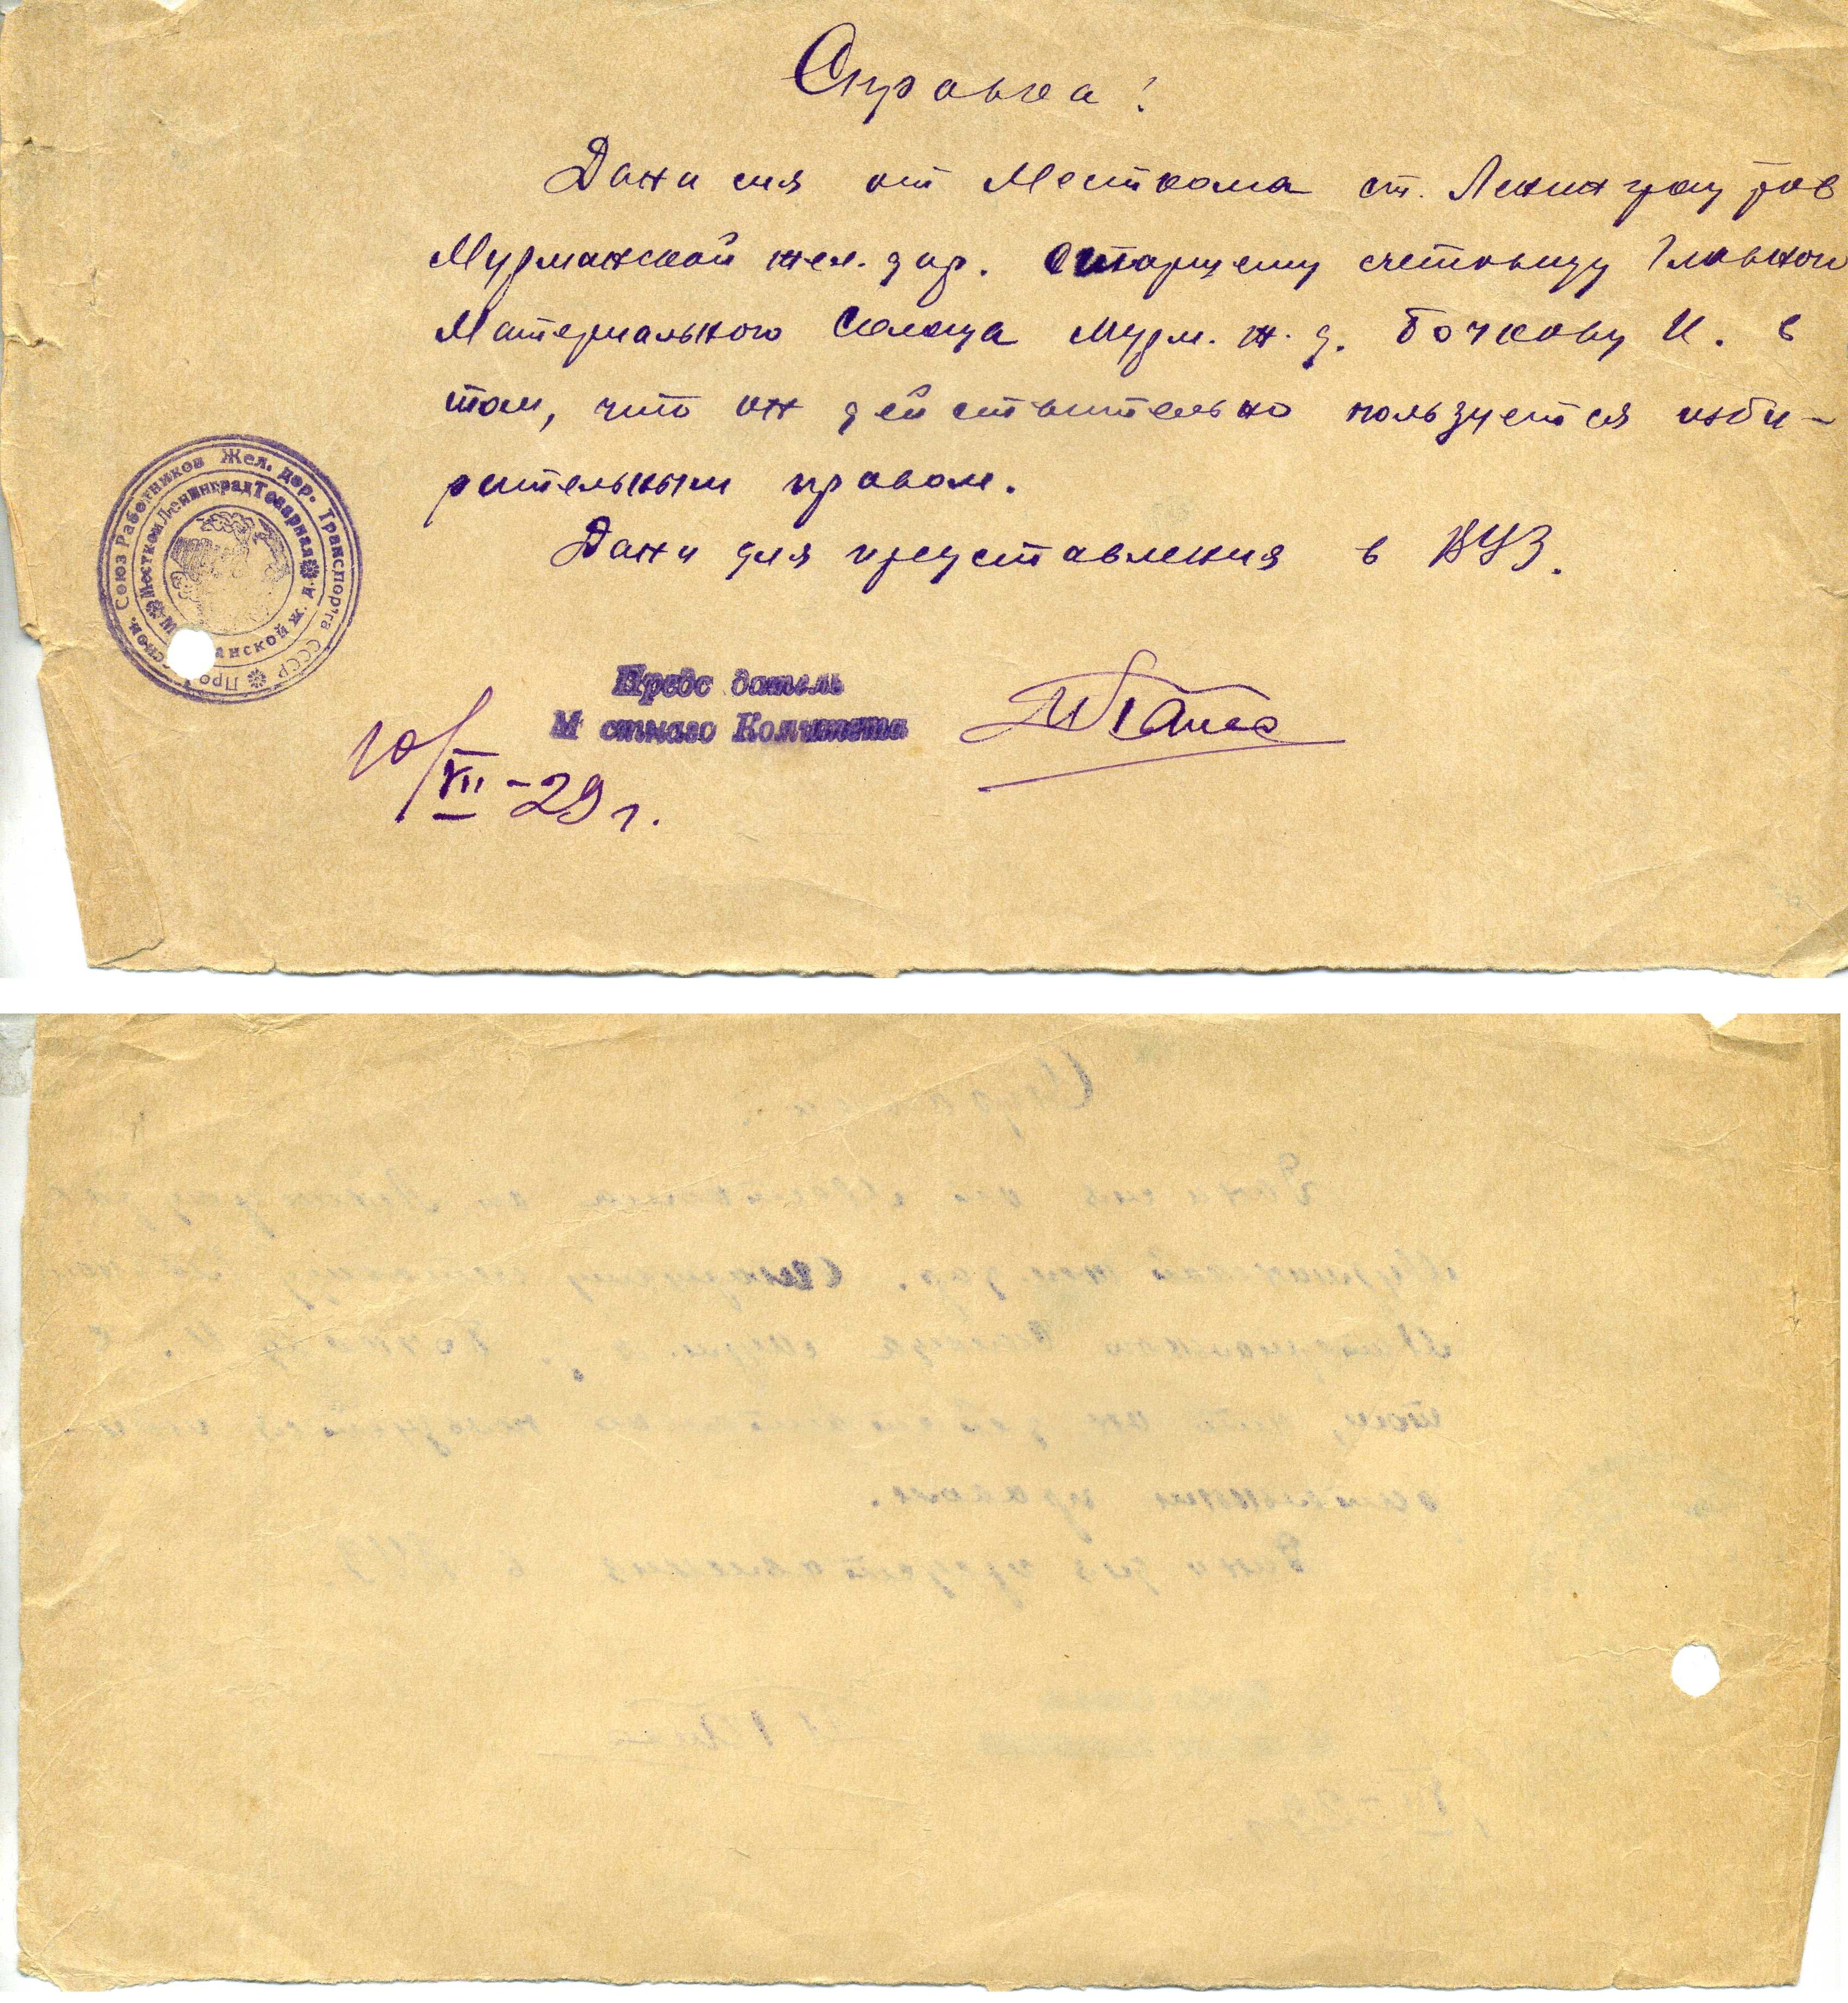 Справка!
Дана сия от Месткома ст. Ленинград тов
Мурманской жел. дор. Старшему счетоводу Главного
Материального Склада Мурм. ж. д. Бочкову И. в
том, что он действительно пользуется изби-
рательным правом.
Дана для представления в ВУЗ.
Союз Работников Жел. дор. Транспорта СССР
Местком Ленинград Товарная
анской ж. д.
Предс датель
М стнаго Комитета
10/VII-29 г.